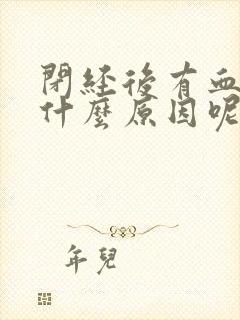 閉經後有血
什麼原因呢
年兒